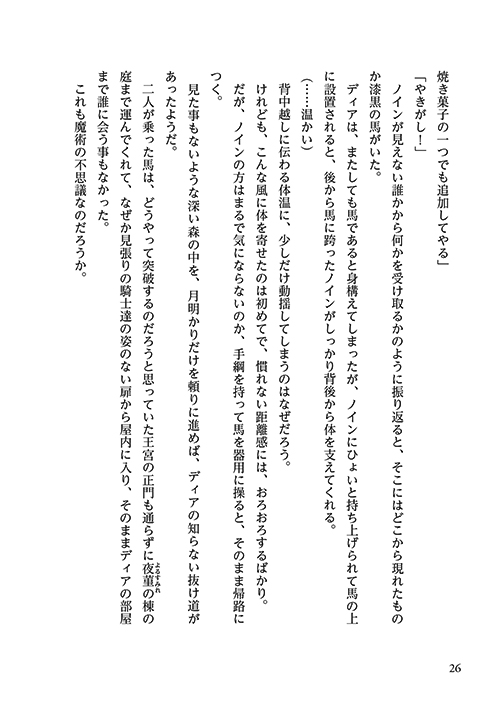 焼き菓子の一つでも追加してやる」
「やきがし！」
　ノインが見えない誰かから何かを受け取るかのように振り返ると、そこにはどこから現れたもの
か漆黒の馬がいた。
　ディアは、またしても馬であると身構えてしまったが、ノインにひょいと持ち上げられて馬の上
に設置されると、後から馬に跨ったノインがしっかり背後から体を支えてくれる。
（……温かい）
　背中越しに伝わる体温に、少しだけ動揺してしまうのはなぜだろう。
　けれども、こんな風に体を寄せたのは初めてで、慣れない距離感には、おろおろするばかり。
　だが、ノインの方はまるで気にならないのか、手綱を持って馬を器用に操ると、そのまま帰路に
つく。
　見た事もないような深い森の中を、月明かりだけを頼りに進めば、ディアの知らない抜け道が
あったようだ。
　二人が乗った馬は、どうやって突破するのだろうと思っていた王宮の正門も通らずに夜菫の棟の
よるすみれ
庭まで運んでくれて、なぜか見張りの騎士達の姿のない扉から屋内に入り、そのままディアの部屋
まで誰に会う事もなかった。
　これも魔術の不思議なのだろうか。
26